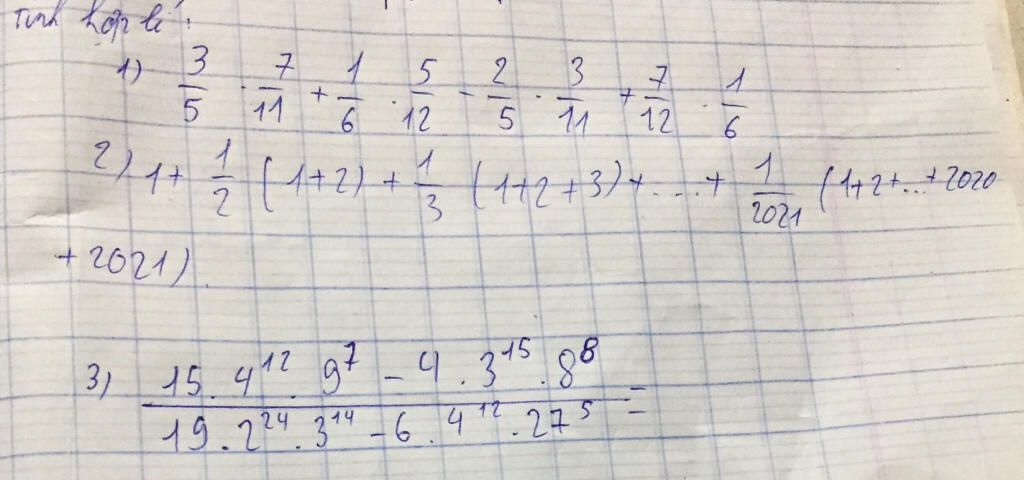 Tính hợp lí :
1) 3/5 . 7/11 + 1/6 . 5/12 - 2/5 . 3/11 + 7/12 . 1/6
2) 1 + 1/2 (1+2) + 1/3 (1+2+3) + ... + 1/2021 (1+2+...+2020
+2021)
3) (15 . 4^12 . 9^7 - 4 . 3^15 . 8^8) / (19 . 2^24 . 3^14 - 6 . 4^12 . 27^5) =